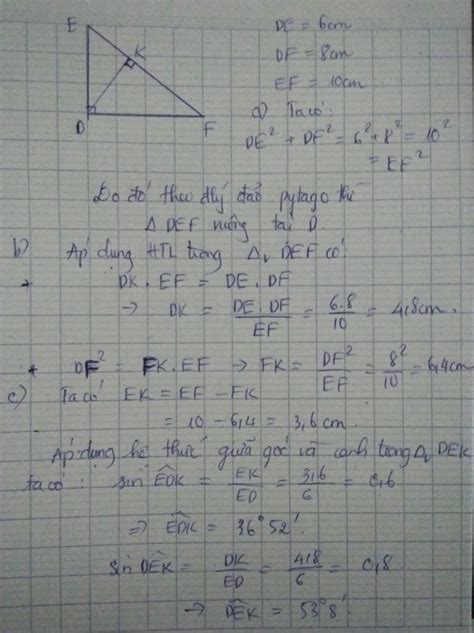 E
K
D
F
DE = 6cm
DF = 8cm
EF = 10cm
a) Ta có:
DE² + DF² = 6² + 8² = 10²
= EF²
Do đó theo đlý đảo pytago thì
Δ DEF vuông tại D.
b) Áp dụng HTL trong Δv DEF có:
* DK . EF = DE . DF
→ DK = DE . DF / EF = 6.8 / 10 = 4,8cm.
* DF² = FK . EF → FK = DF² / EF = 8² / 10 = 6,4cm
c) Ta có EK = EF - FK
= 10 - 6,4 = 3,6 cm.
Áp dụng hệ thức giữa góc và cạnh trong Δv DEK
ta có: sin EDK = EK / ED = 3,6 / 6 = 0,6
⇒ EDK = 36° 52'.
sin DEK = DK / ED = 4,8 / 6 = 0,8
→ DEK = 53° 8'